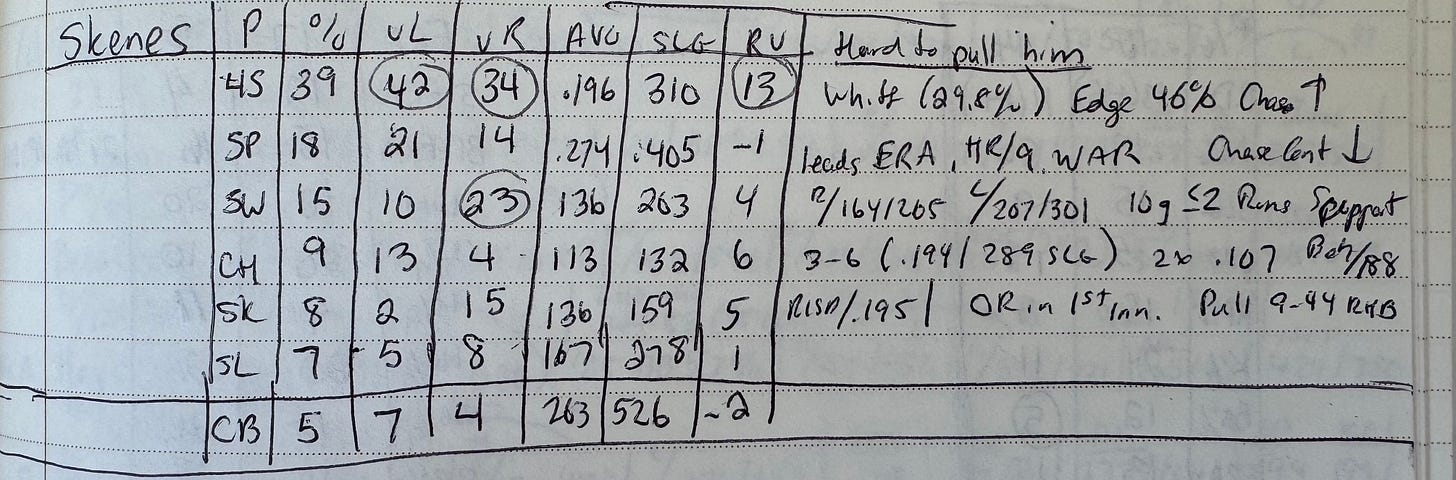 Skenes P % vL vR AVG SLG RV Hard to pull him
4S 39 42 34 .196 310 13 Whiff (29.8%) Edge 46% Chase ↑
SP 18 21 14 .274 .405 -1 leads ERA, HR/9, WAR Chase Cont ↓
SW 15 10 23 136 203 4 R/164/205 L/207/301 10g ≤2 Runs Support
CH 9 13 4 113 132 6 3-6 (.194/289 SLG) 2x .107
SK 8 2 15 136 159 5 RISP/.195/ OR in 1st Inn. Pull 9-44 RHB
SL 7 5 8 167 278 1
CB 5 7 4 263 526 -2